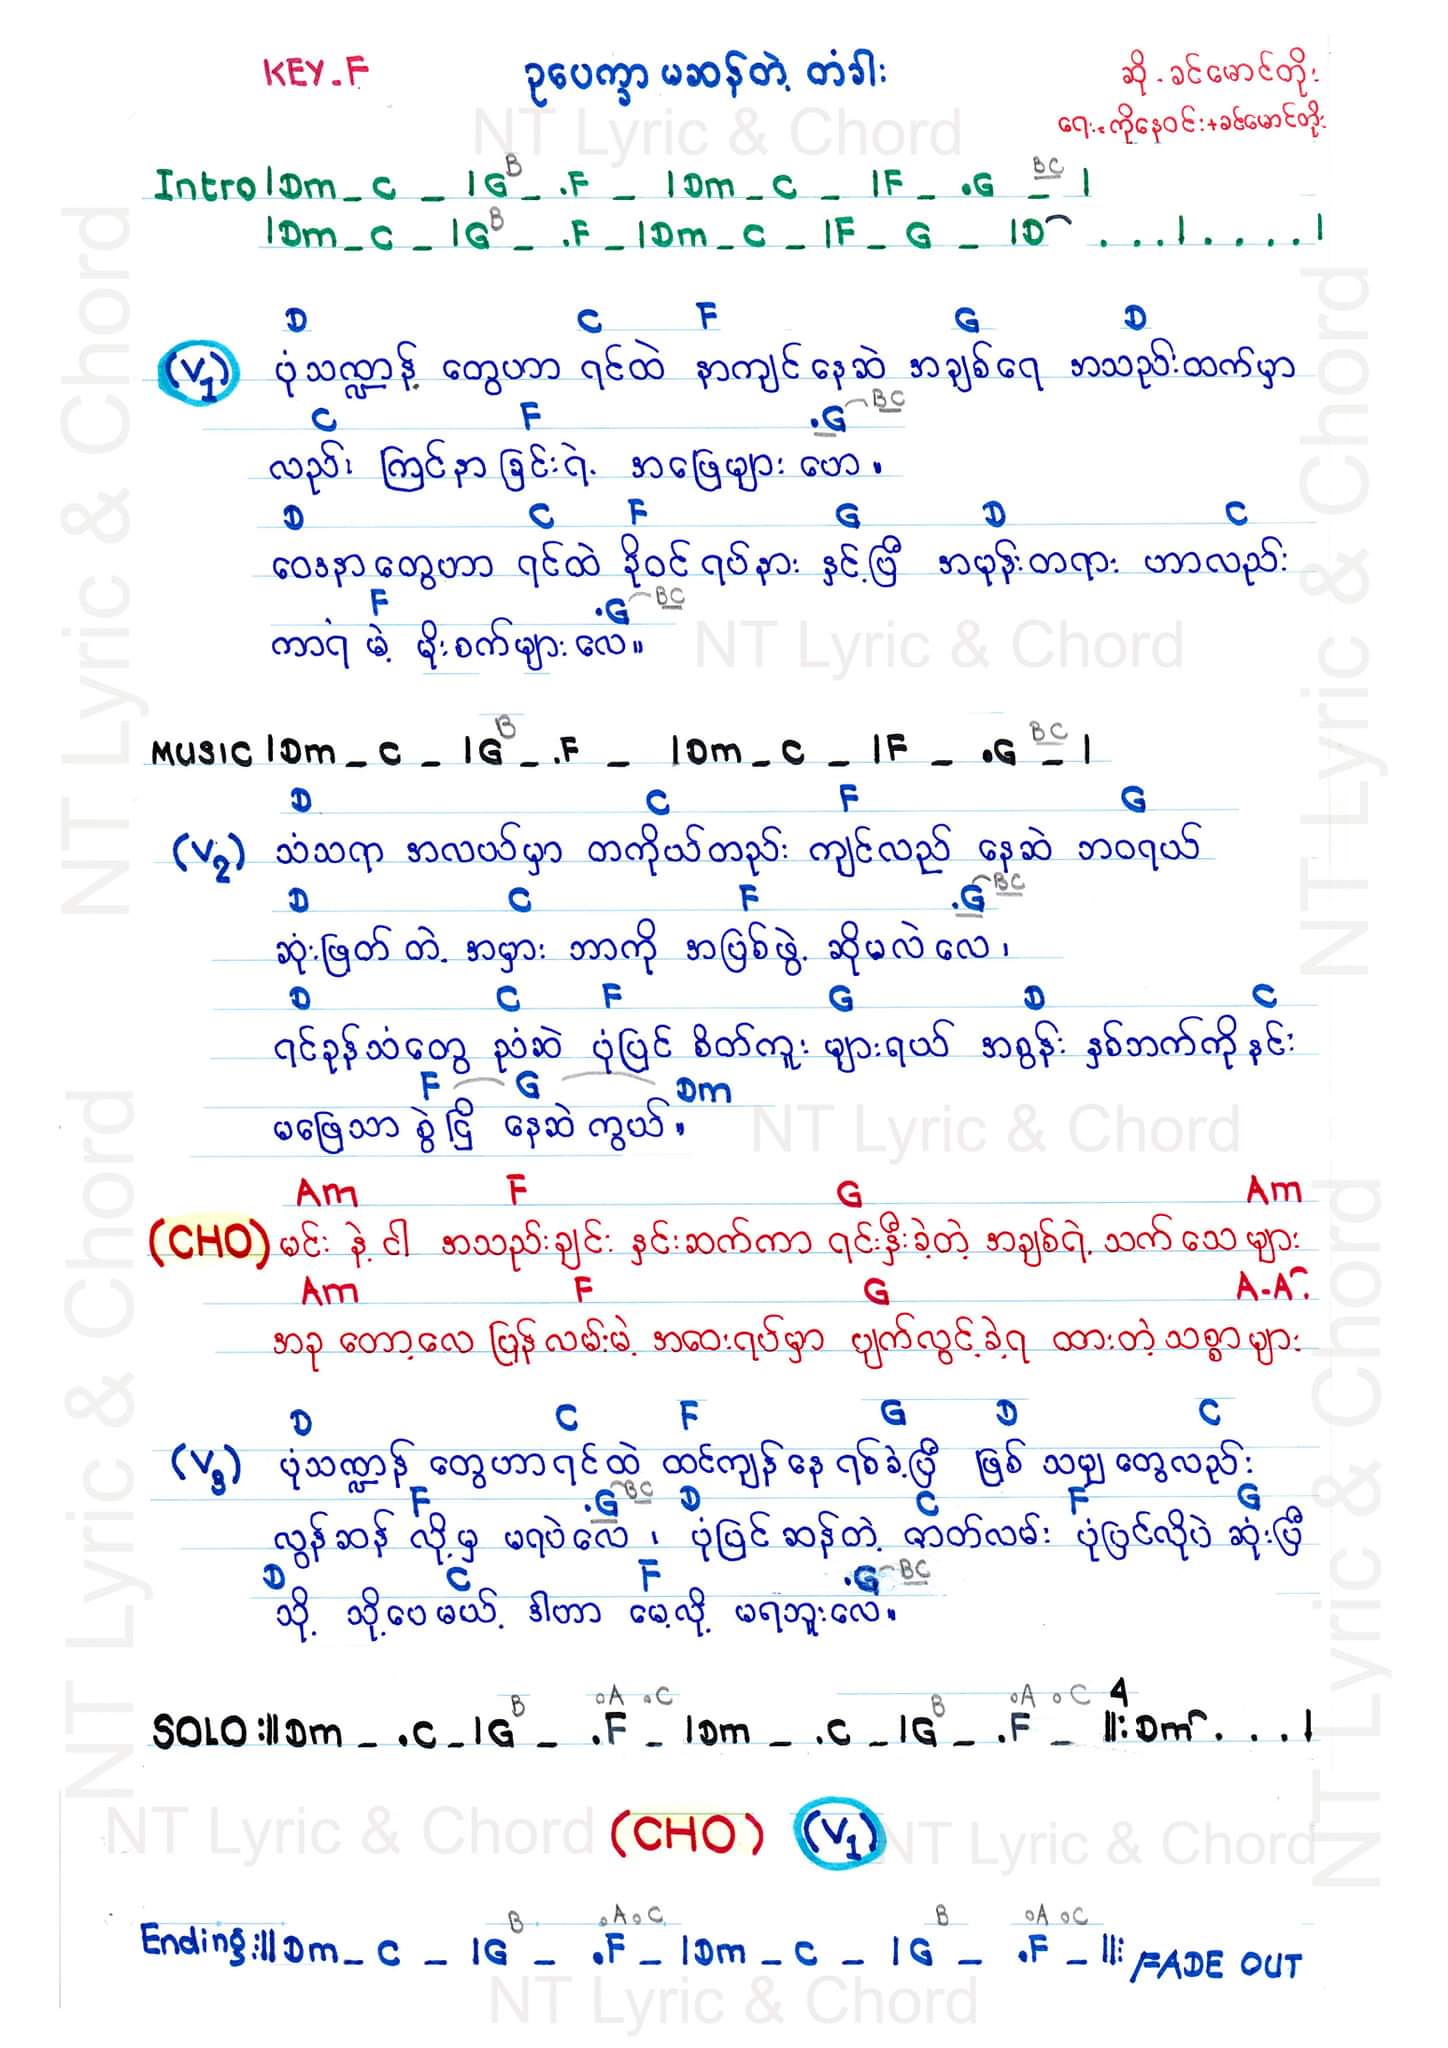 KEY.F ဥပေက္ခာ မဆန်တဲ့ တံခါး ဆို - ခင်မောင်တိုး
ရေး - ကိုနေဝင်း + ခင်မောင်တိုး
NT Lyric & Chord
Intro |Dm _ C _ |G B _ .F _ |Dm _ C _ |F _ .G BC _ |
|Dm _ C _ |G B _ .F _ |Dm _ C _ |F _ G _ |D . . . | . . . . |
D C F G D
(V1) ပုံသဏ္ဍာန် တွေဟာ ရင်ထဲ နာကျင်နေဆဲ အချစ်ရေ အသည်းထက်မှာ
C F .G BC
လည်း ကြင်နာခြင်းရဲ့ အဖြေများ ဟော။
D C F G D C
ဝေဒနာတွေဟာ ရင်ထဲ ခိုဝင် ရပ်နား နှင့်ပြီ အမုန်းတရား ဟာလည်း
F .G BC
ကာရံ မဲ့ မိုးစက်များလေ။
NT Lyric & Chord
MUSIC |Dm _ C _ |G B _ .F _ |Dm _ C _ |F _ .G BC _ |
D C F G
(V2) သံသရာ အလယ်မှာ တကိုယ်တည်း ကျင်လည် နေဆဲ ဘဝရယ်
D C F .G BC
ဆုံးဖြတ် တဲ့ အမှား ဘာကို အပြစ်ဖွဲ့ ဆိုမလဲလေ၊
D C F G D C
ရင်ခုန်သံတွေ ညံဆဲ ပုံပြင် စိတ်ကူး များရယ် အစွန်း နှစ်ဘက်ကိုနင်း
F G Dm
မဖြေသာ စွဲငြိ နေဆဲ ကွယ်။
NT Lyric & Chord
Am F G Am
(CHO) မင်း နဲ့ ငါ အသည်းချင်း နှင်းဆက်ကာ ရင်းနှီးခဲ့တဲ့ အချစ်ရဲ့ သက်သေများ
Am F G A-A.
အခု တော့လေ ပြန်လမ်းမဲ့ အဝေးရပ်မှာ ပျက်လွင့်ခဲ့ရ ထားတဲ့သစ္စာများ
D C F G D C
(V3) ပုံသဏ္ဍာန် တွေဟာရင်ထဲ ထင်ကျန်နေ ရစ်ခဲ့ပြီ ဖြစ် သမျှတွေလည်း
F .G BC D C F G
လွန်ဆန် လို့မှ မရပဲလေ ၊ ပုံပြင်ဆန်တဲ့ ဇာတ်လမ်း ပုံပြင်လိုပဲ ဆုံးပြီ
D C F .G BC
သို့ သို့ပေမယ့် ဒါဟာ မေ့လို့ မရဘူးလေ။
SOLO :||Dm _ .C _ |G B _ .F oA oC _ |Dm _ .C _ |G B _ .F oA oC _ ||: 4 Dm . . . |
NT Lyric & Chord (CHO) (V1) NT Lyric & Chord
Ending :||Dm _ C _ |G B _ .F .A oC _ |Dm _ C _ |G B _ .F oA oC _ ||: FADE OUT
NT Lyric & Chord
NT Lyric & Chord
NT Lyric & Chord
NT Lyric & Chord
NT Lyric & Chord